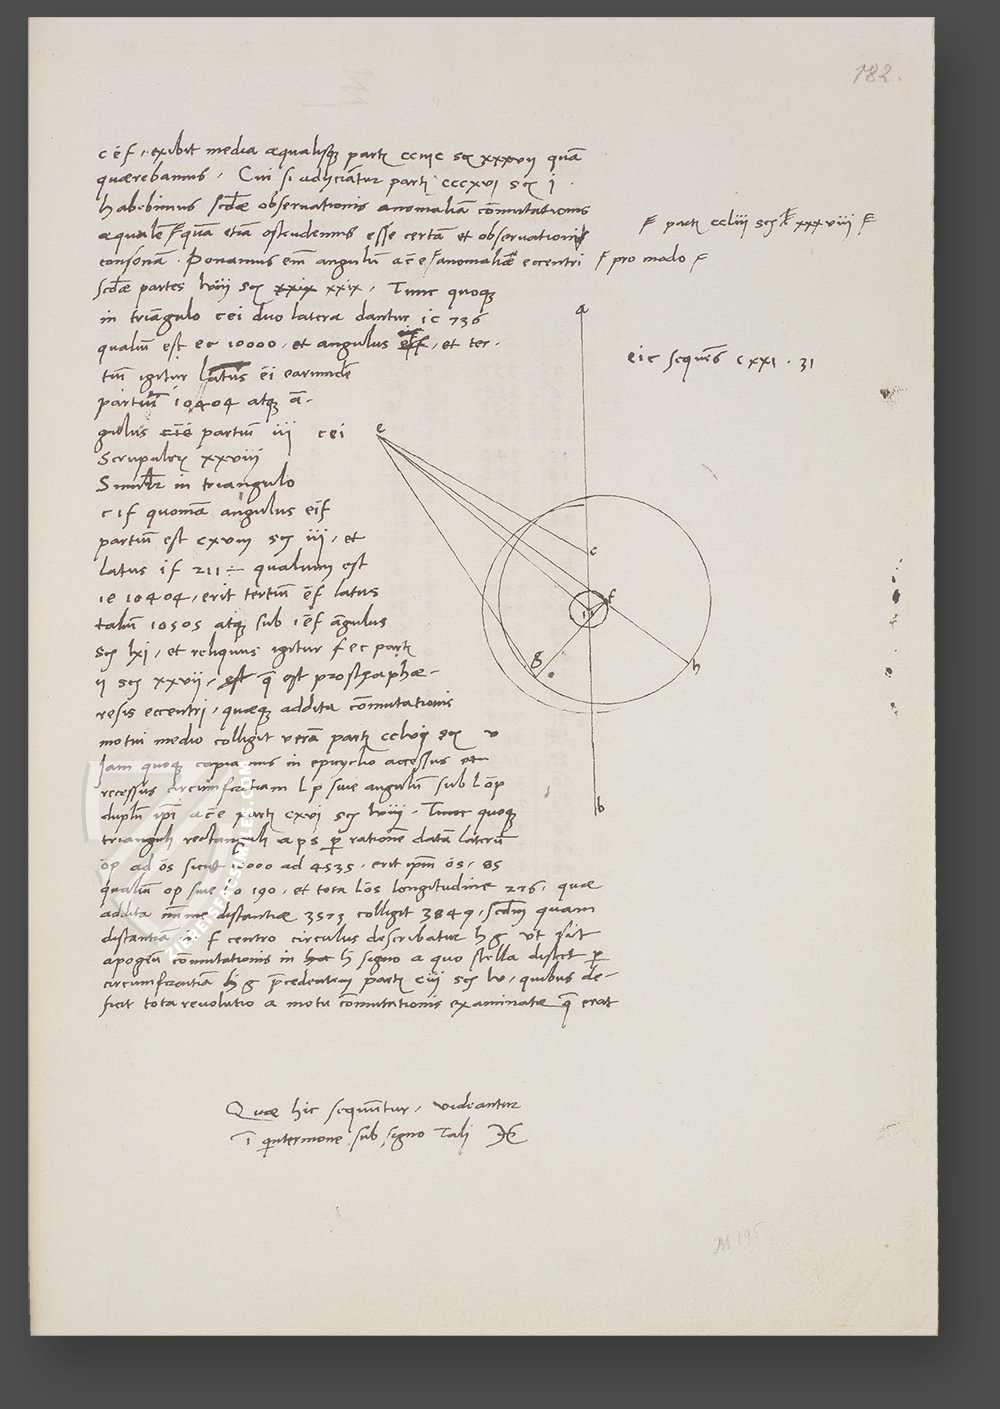 182.
c e f, exibit media æqualisqꝫ part cciiic scr xxxvii quā
quærebamus. Cui si adijciātur parti cccxvi scr i.
habebimus scdæ observationis anomaliā cōmutationis
æqualē quā etiā ostendemus esse certā et observationi
consonā. Ponamus em angulū a c e anomaliæ eccentri
scdæ partes lviii scr xxix. Tunc quoqꝫ
in triāgulo c e i duo latera dantur ic 736
qualiū est ec 10000, et angulus, et ter-
tiū igitur latus ei earumdē
partiū 10404 atqꝫ ā-
gulus partiū iii cei
Scrupulorū xxviii
Similr in triangulo
e i f quoniā angulus eif
partiū est cxviii scr iii, et
latus if 211 ÷ qualium est
ie 10404, erit tertiū ef latus
taliū 10505 atqꝫ sub ief āngulus
scr lxi, et reliquus igitur fec part
ii scr xxvii, q̄ est prosthaphæ-
resis eccentri, quæqꝫ addita cōmutationis
motui medio colligit verā part cclvi scr v
Iam quoqꝫ capiamus in epicyclo accessus
recessus circumferētiam l p sive angulū sub l o p
duplū ipi a c e part cxvi scr lviii. Tunc quoqꝫ
trianguli rectanguli o p s p̄ rationē datā laterū
op ad os sicut 10000 ad 4535, erit ipm os, 85
qualiū op sive lo 190, et tota los longitudine 276, quæ
addita mīmæ distantiæ 3573 colligit 3849, scdm quam
distantiā f centro circulus describatur hg ut sit
apogeū cōmutationis in h signo a quo stella distet p̄
circumferētiā hg præcedentem part ciii scr lv, quibus de-
ficit tota revolutio a motu cōmutationis examinatæ q̄ erat
part ccliii scr xxxviii
pro modo
eic sequēs cxxi. 31
a
e
c
i
f
g
h
b
Quæ hic sequūtur, videantur
ī quinternione sub signo Tali